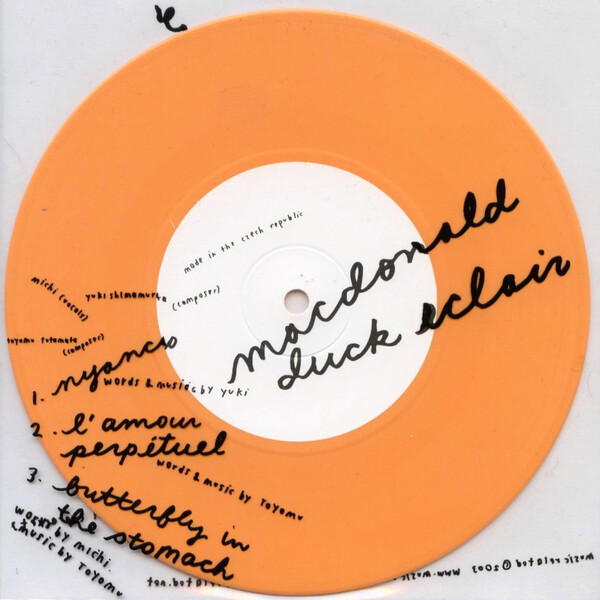 made in the czech republic
michi (vocals)
yuki shimamura (composer)
toyomu futamata (composer)
macdonald
duck eclair
1.
words & music by yuki
2. l'amour
perpétuel
words & music by Toyomu
3. butterfly in
the stomach
words by michi.
music by Toyomu